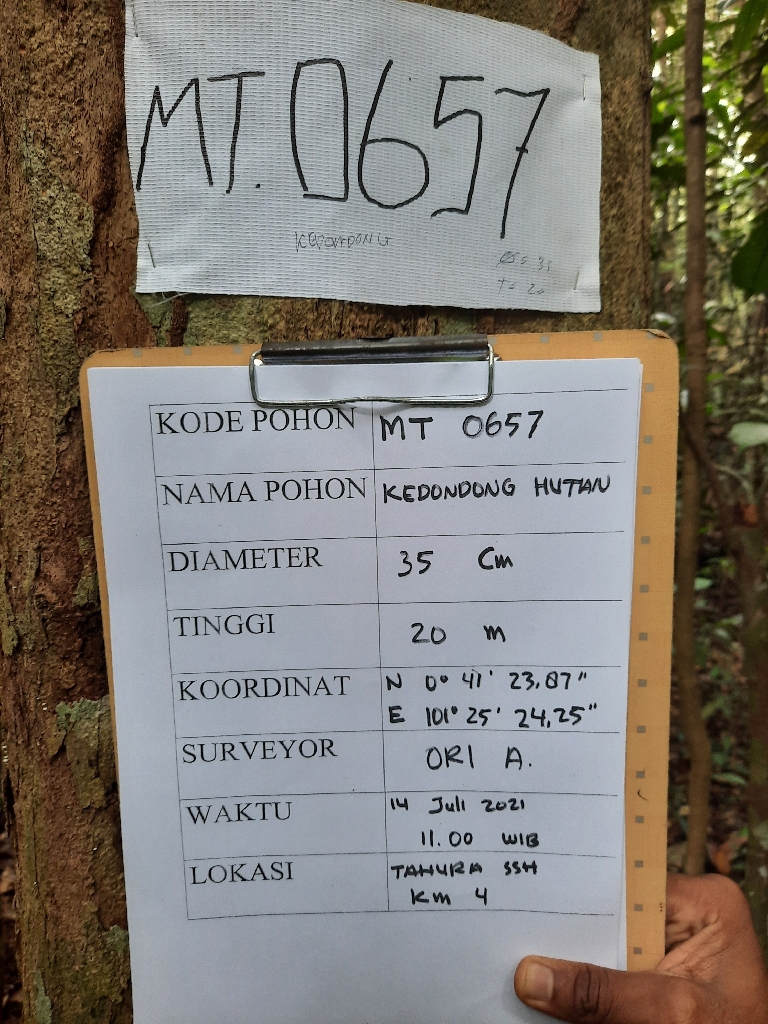 MT. 0657
KEDONDONG
T = 20
KODE POHON MT 0657
NAMA POHON KEDONDONG HUTAN
DIAMETER 35 Cm
TINGGI 20 m
KOORDINAT N 0° 41' 23,87"
E 101° 25' 24,25"
SURVEYOR ORI A.
WAKTU 14 Juli 2021
11.00 WIB
LOKASI TAHURA SSH
Km 4